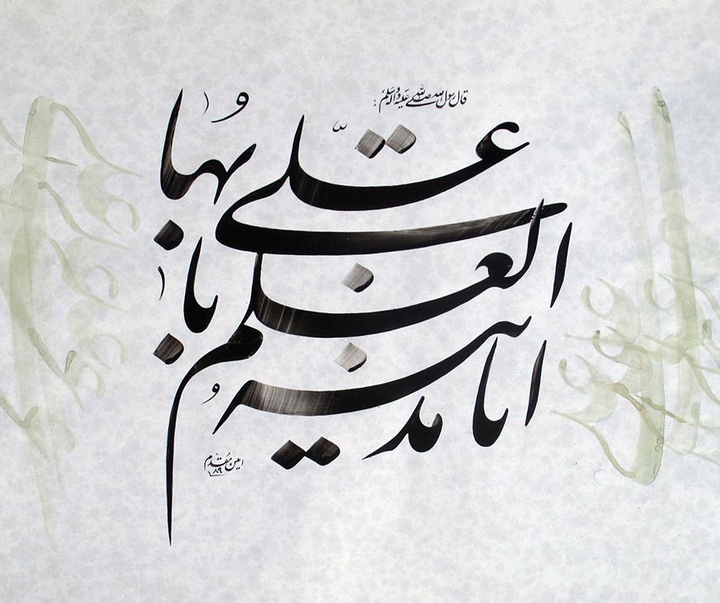 قال رسول الله صلی الله علیه و آله وسلم :
انا مدینة
العلم و
علی بابها
امین مقدم
۸۹